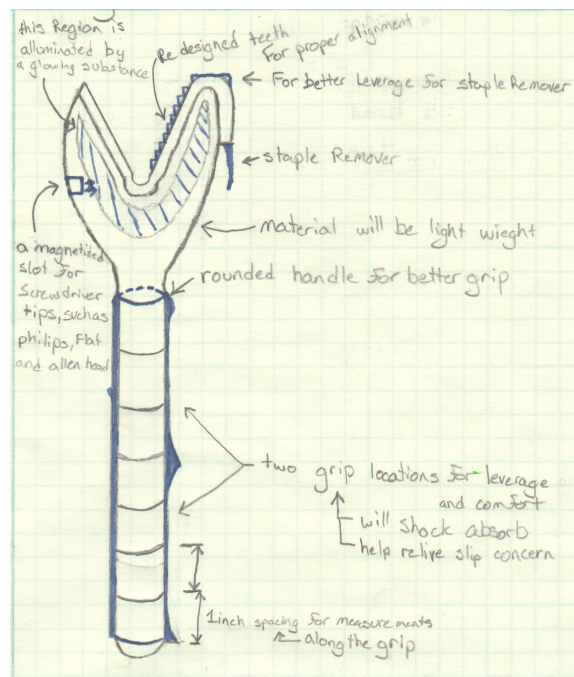 this Region is
alluminated by
a glowing substance
Redesigned teeth
For proper alignment
For better leverage for staple Remover
staple Remover
material will be light wieght
a magnetized
slot for
screwdriver
tips, suchas
philips, Flat
and allen head
rounded handle for better grip
two grip locations for leverage
and comfort
will shock absorb
help relive slip concern
1inch spacing for measurements
along the grip